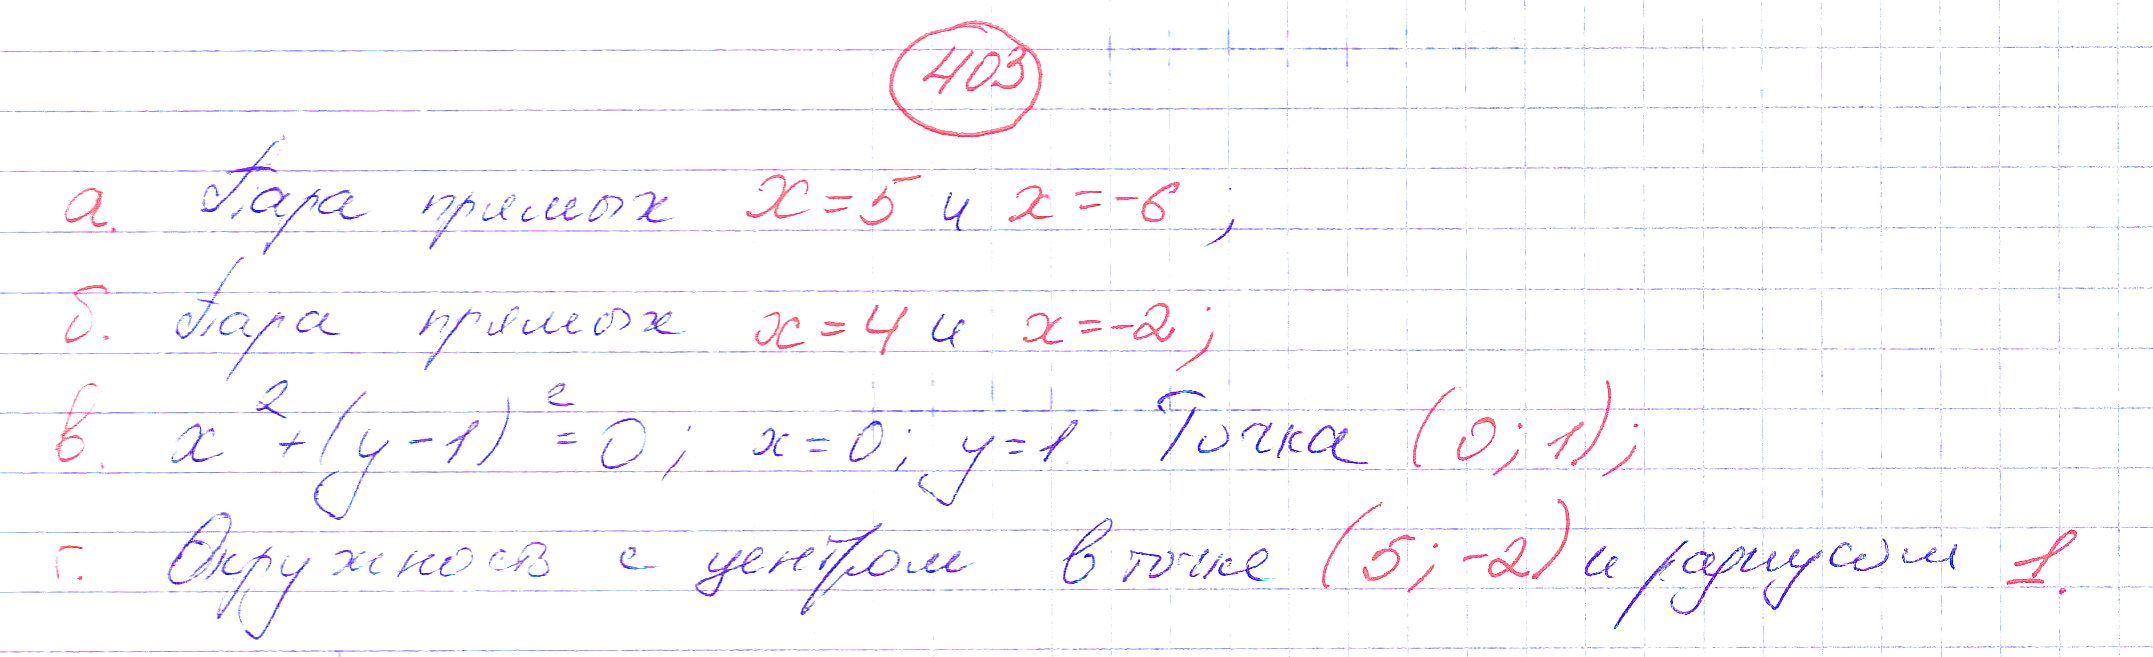 403
а. Пара прямых x = 5 и x = -6 ;
б. Пара прямых x = 4 и x = -2;
в. x² + (y - 1)² = 0; x = 0; y = 1 Точка (0; 1);
г. Окружность с центром в точке (5; -2) и радиусом 1.